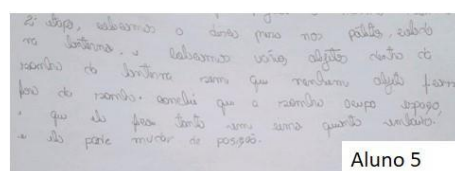 2ª etapa, colocamos o dedo para nos palito, colado
na lanterna, e colocamos vários objetos dentro do
sombra da lanterna sem que nenhum objeto ficam
fora da sombra. conclui que a sombra ocupa espaço,
e que ela fica tanto em cima quanto embaixo.
e ela pode mudar de posição.
Aluno 5